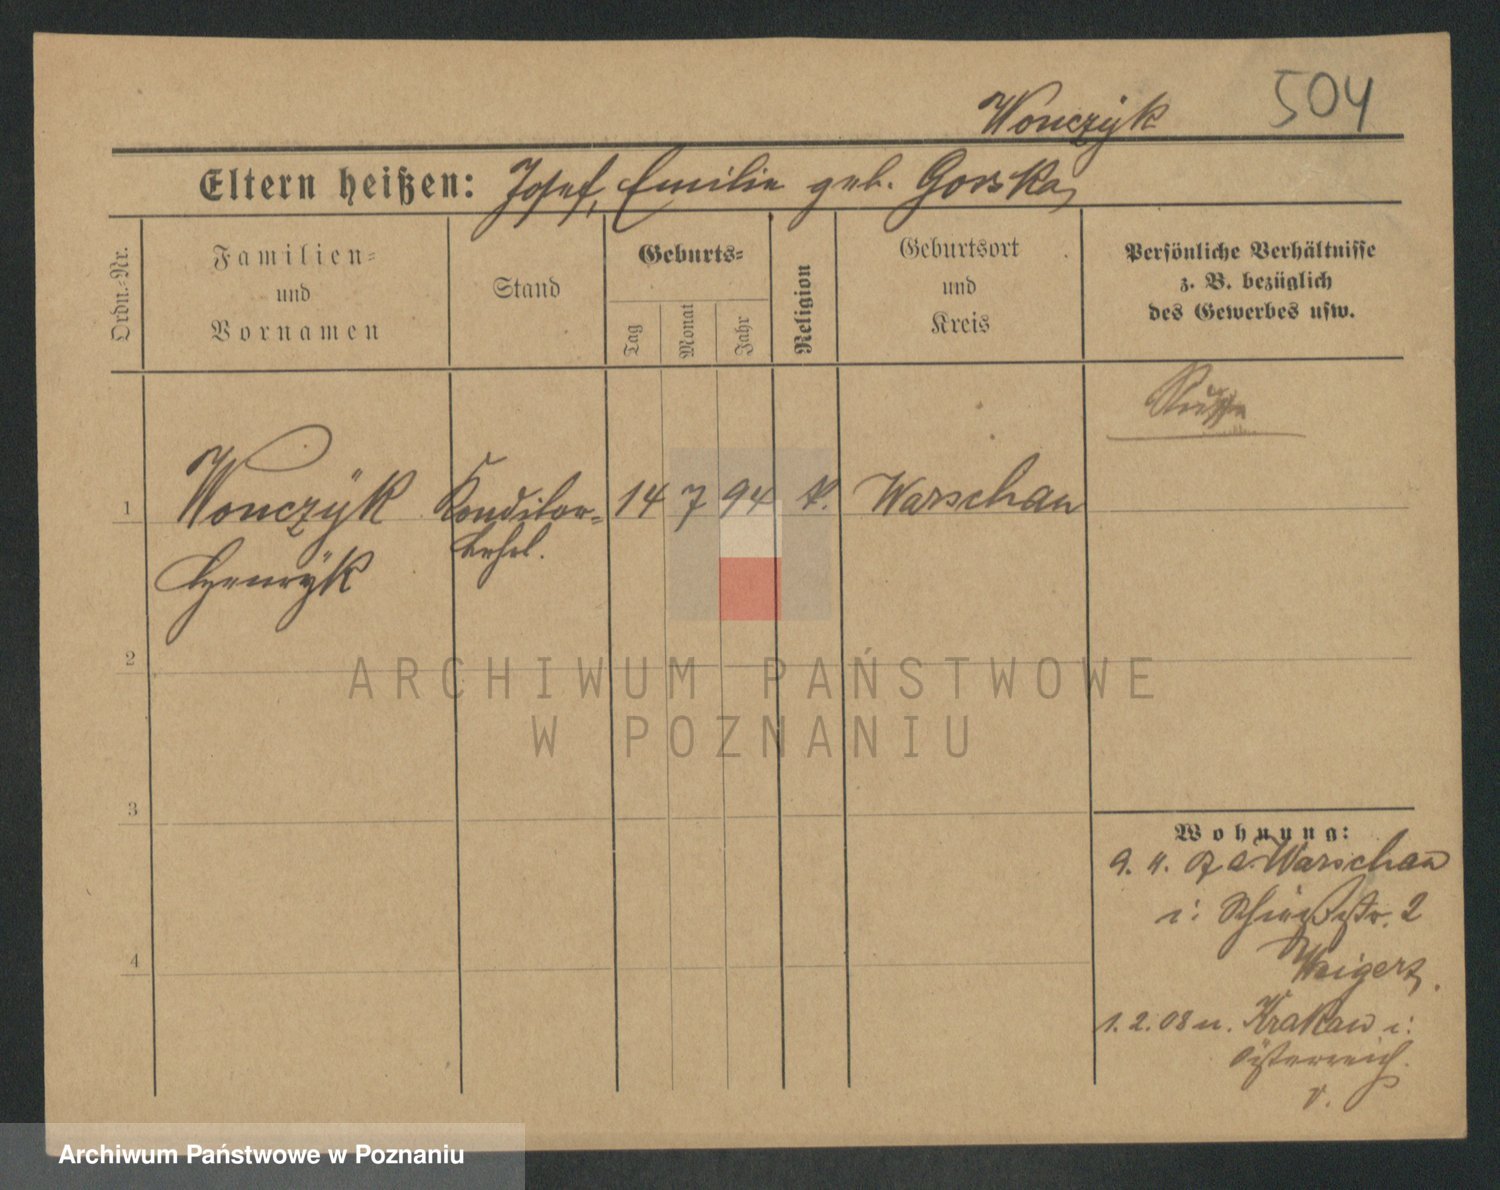 Wonczÿk 504
Eltern heißen: Josef, Emilie geb. Gorska
Ordn.-Nr.
Familien-
und
Vornamen
Stand
Geburts-
Tag
Monat
Jahr
Religion
Geburtsort
und
Kreis
Persönliche Verhältnisse
z. B. bezüglich
des Gewerbes usw.
Russe
1 Wonczÿk Konditor- 14 7 94 k. Warschau
Henrÿk Lehrl.
2
3
4
Wohnung:
9. 4. 07 a. Warschau
i: Schießstr. 2
Weigert.
1. 2. 08 n. Krakau i:
Österreich.
v.
ARCHIWUM PAŃSTWOWE
W POZNANIU
Archiwum Państwowe w Poznaniu